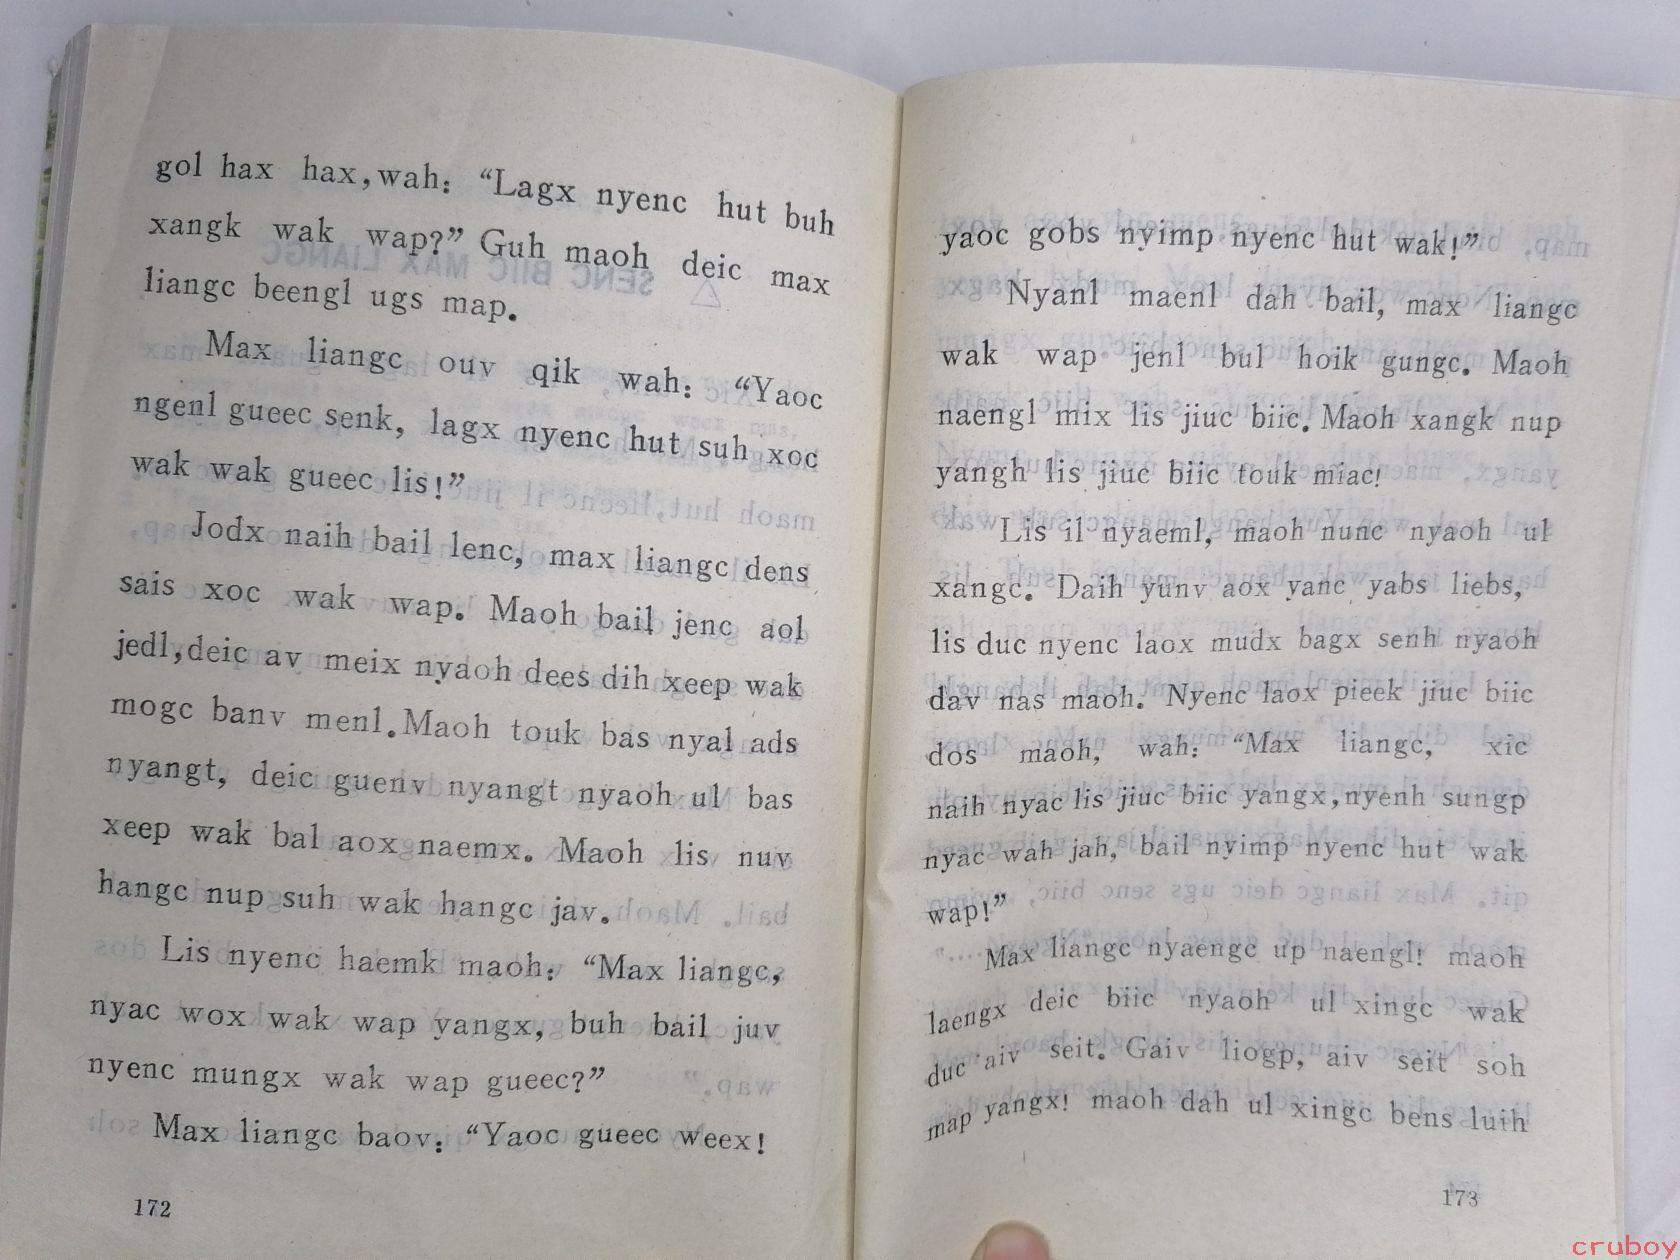 gol hax hax,wah: “Lagx nyenc hut buh
xangk wak wap?” Guh maoh deic max
liangc beengl ugs map.
Max liangc ouv qik wah: “Yaoc
ngenl gueec senk, lagx nyenc hut suh xoc
wak wak gueec lis!”
Jodx naih bail lenc, max liangc dens
sais xoc wak wap. Maoh bail jenc aol
jedl,deic av meix nyaoh dees dih xeep wak
mogc banv menl.Maoh touk bas nyal ads
nyangt, deic guenv nyangt nyaoh ul bas
xeep wak bal aox naemx. Maoh lis nuv
hangc nup suh wak hangc jav.
Lis nyenc haemk maoh: “Max liangc,
nyac wox wak wap yangx, buh bail juv
nyenc mungx wak wap gueec?”
Max liangc baov: “Yaoc gueec weex!
172
yaoc gobs nyimp nyenc hut wak!”
Nyanl maenl dah bail, max liangc
wak wap jenl bul hoik gungc. Maoh
naengl mix lis jiuc biic. Maoh xangk nup
yangh lis jiuc biic touk miac!
Lis il nyaeml, maoh nunc nyaoh ul
xangc. Daih yunv aox yanc yabs liebs,
lis duc nyenc laox mudx bagx senh nyaoh
dav nas maoh. Nyenc laox pieek jiuc biic
dos maoh, wah: “Max liangc, xic
naih nyac lis jiuc biic yangx,nyenh sungp
nyac wah jah, bail nyimp nyenc hut wak
wap!”
Max liangc nyaengc up naengl! maoh
laengx deic biic nyaoh ul xingc wak
duc aiv seit. Gaiv liogp, aiv seit soh
map yangx! maoh dah ul xingc bens luih
173
cruboy